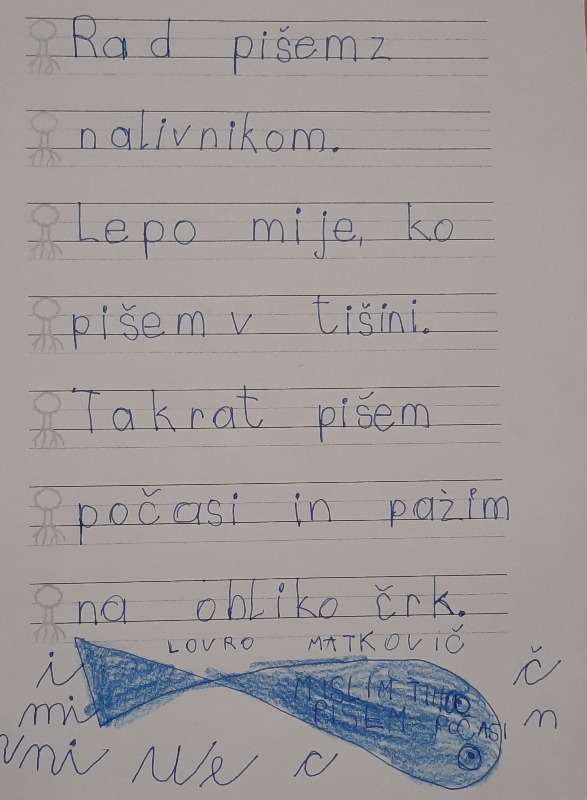 Rad pišem z
nalivnikom.
Lepo mi je, ko
pišem v tišini.
Takrat pišem
počasi in pazim
na obliko črk.
LOVRO MATKOVIČ
i č
mi
MISLIM TIHO
PIŠEM POČASI
n